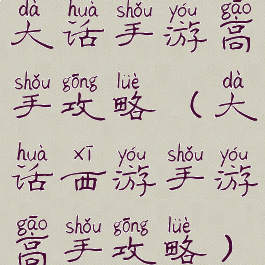 dà huà shǒu yóu gāo
大话手游高
shǒu gōng lüè dà
手攻略（大
huà xī yóu shǒu yóu
话西游手游
gāo shǒu gōng lüè
高手攻略）